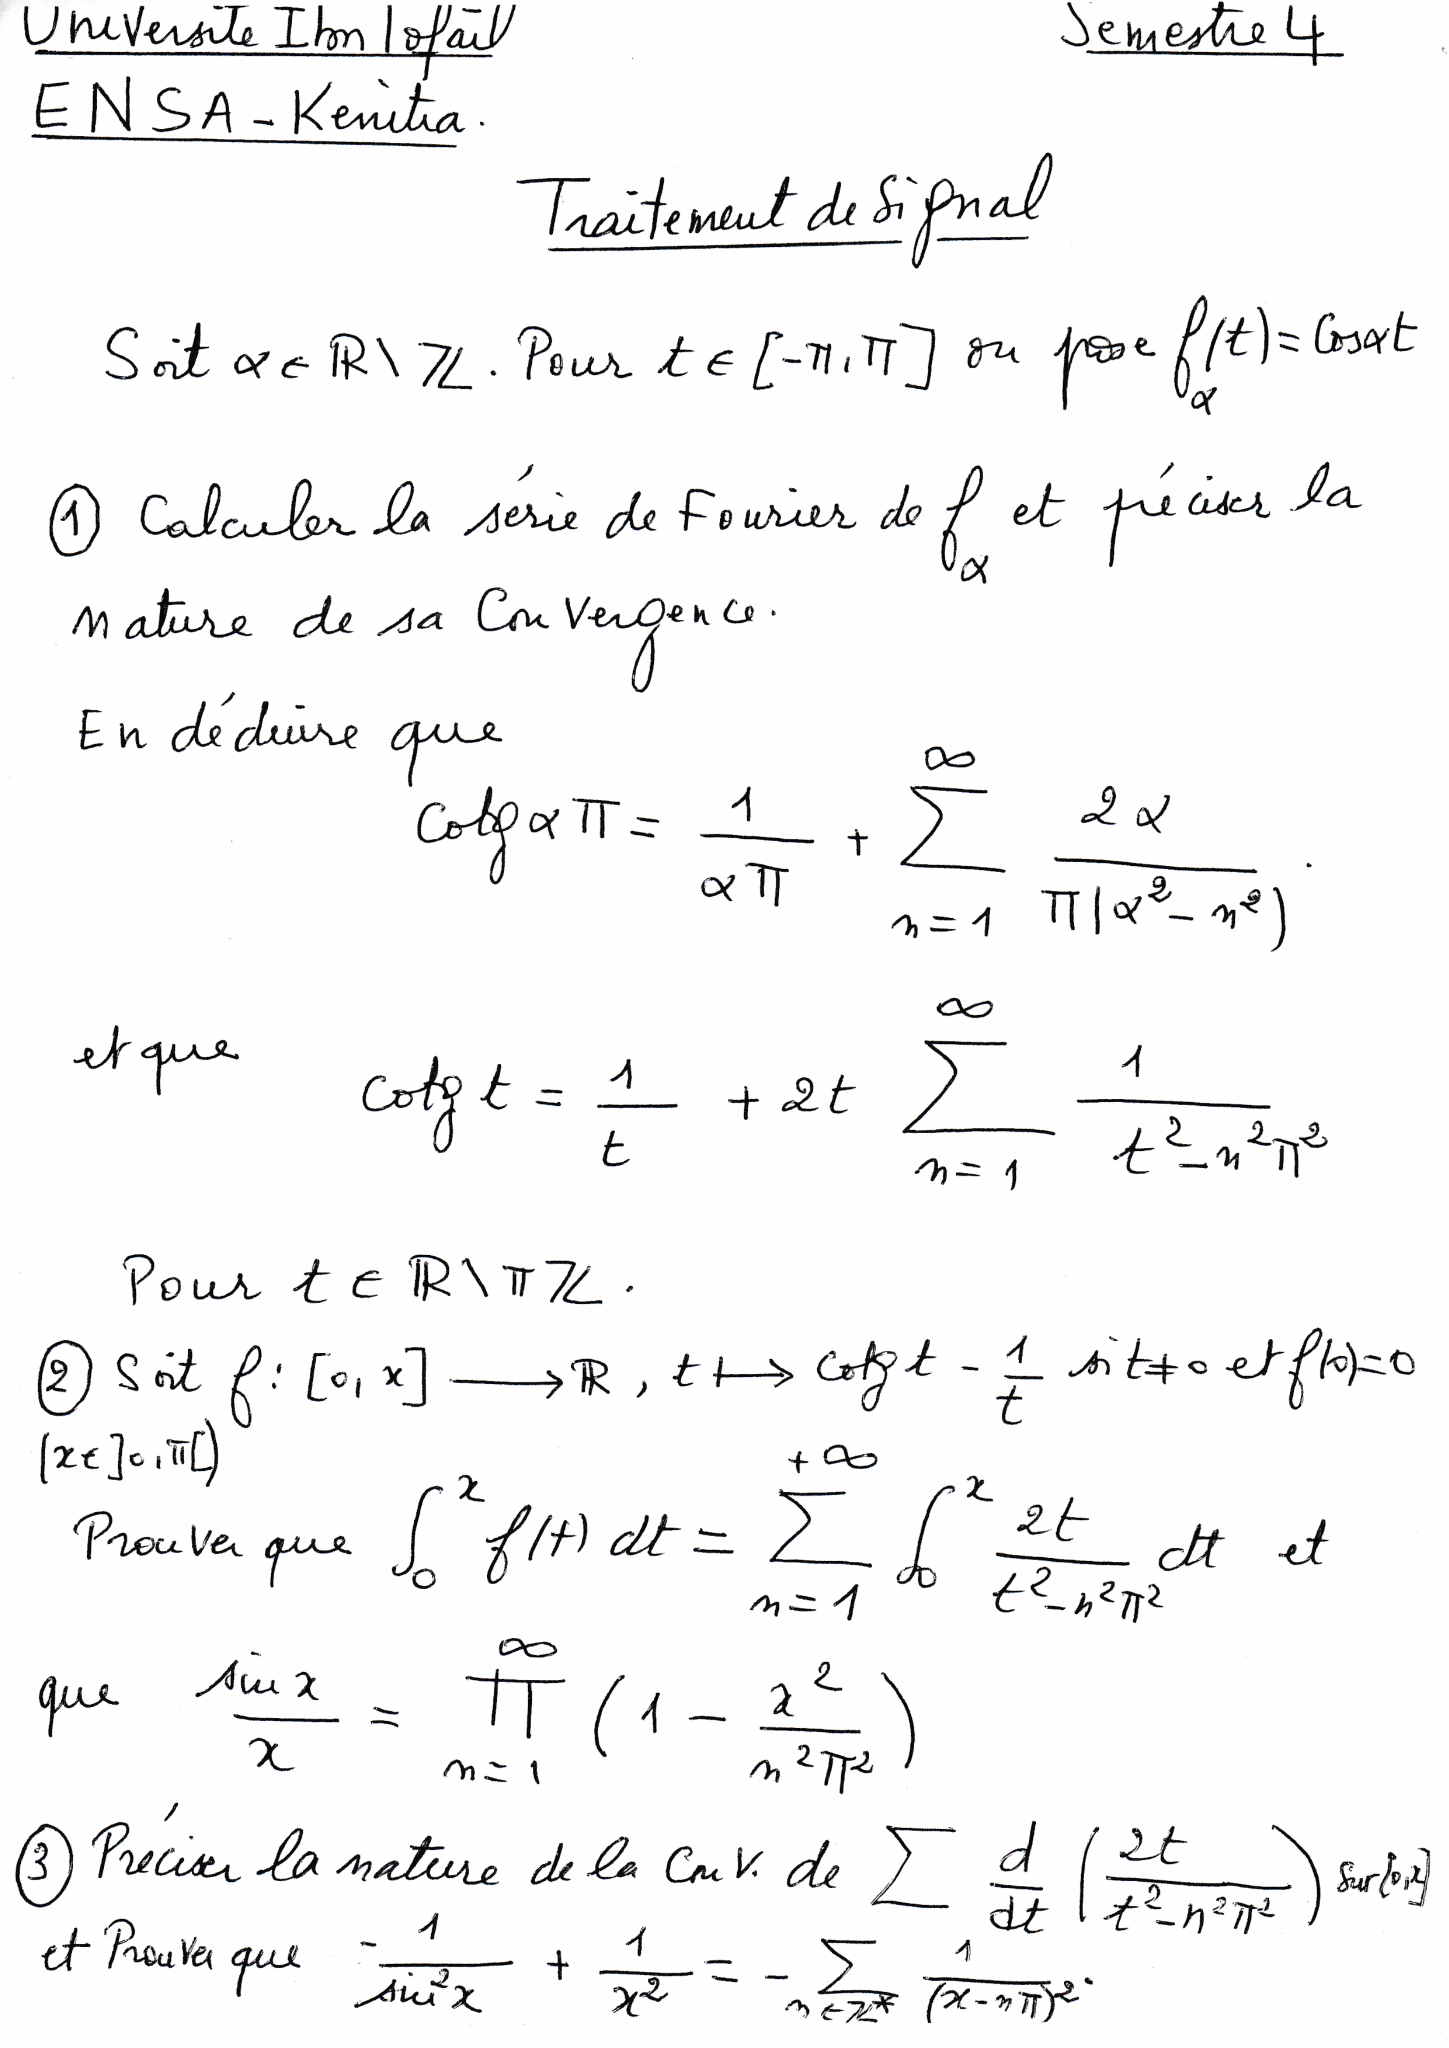 Universite Ibn Tofail Semestre 4
ENSA - Kenitra.
Traitement de Signal
Soit α ∈ ℝ\ℤ. Pour t ∈ [-π,π] on pose f_α(t) = Cosαt
① Calculer la série de Fourier de f_α et préciser la
nature de sa Convergence.
En déduire que
Cotg απ = 1/(απ) + ∑_{n=1}^{∞} 2α/(π(α²-n²)).
et que cotg t = 1/t + 2t ∑_{n=1}^{∞} 1/(t²-n²π²)
Pour t ∈ ℝ\πℤ.
② Soit f: [0,x] ⟶ ℝ, t ⟼ cotg t - 1/t si t≠0 et f(0)=0
(x∈]0,π[)
Prouver que ∫_0^x f(t) dt = ∑_{n=1}^{+∞} ∫_0^x 2t/(t²-n²π²) dt et
que sin x/x = ∏_{n=1}^{∞} (1 - x²/(n²π²))
③ Préciser la nature de la Conv. de ∑ d/dt (2t/(t²-n²π²)) sur [0,x]
et Prouver que -1/sin²x + 1/x² = -∑_{n∈ℤ*} 1/(x-nπ)².